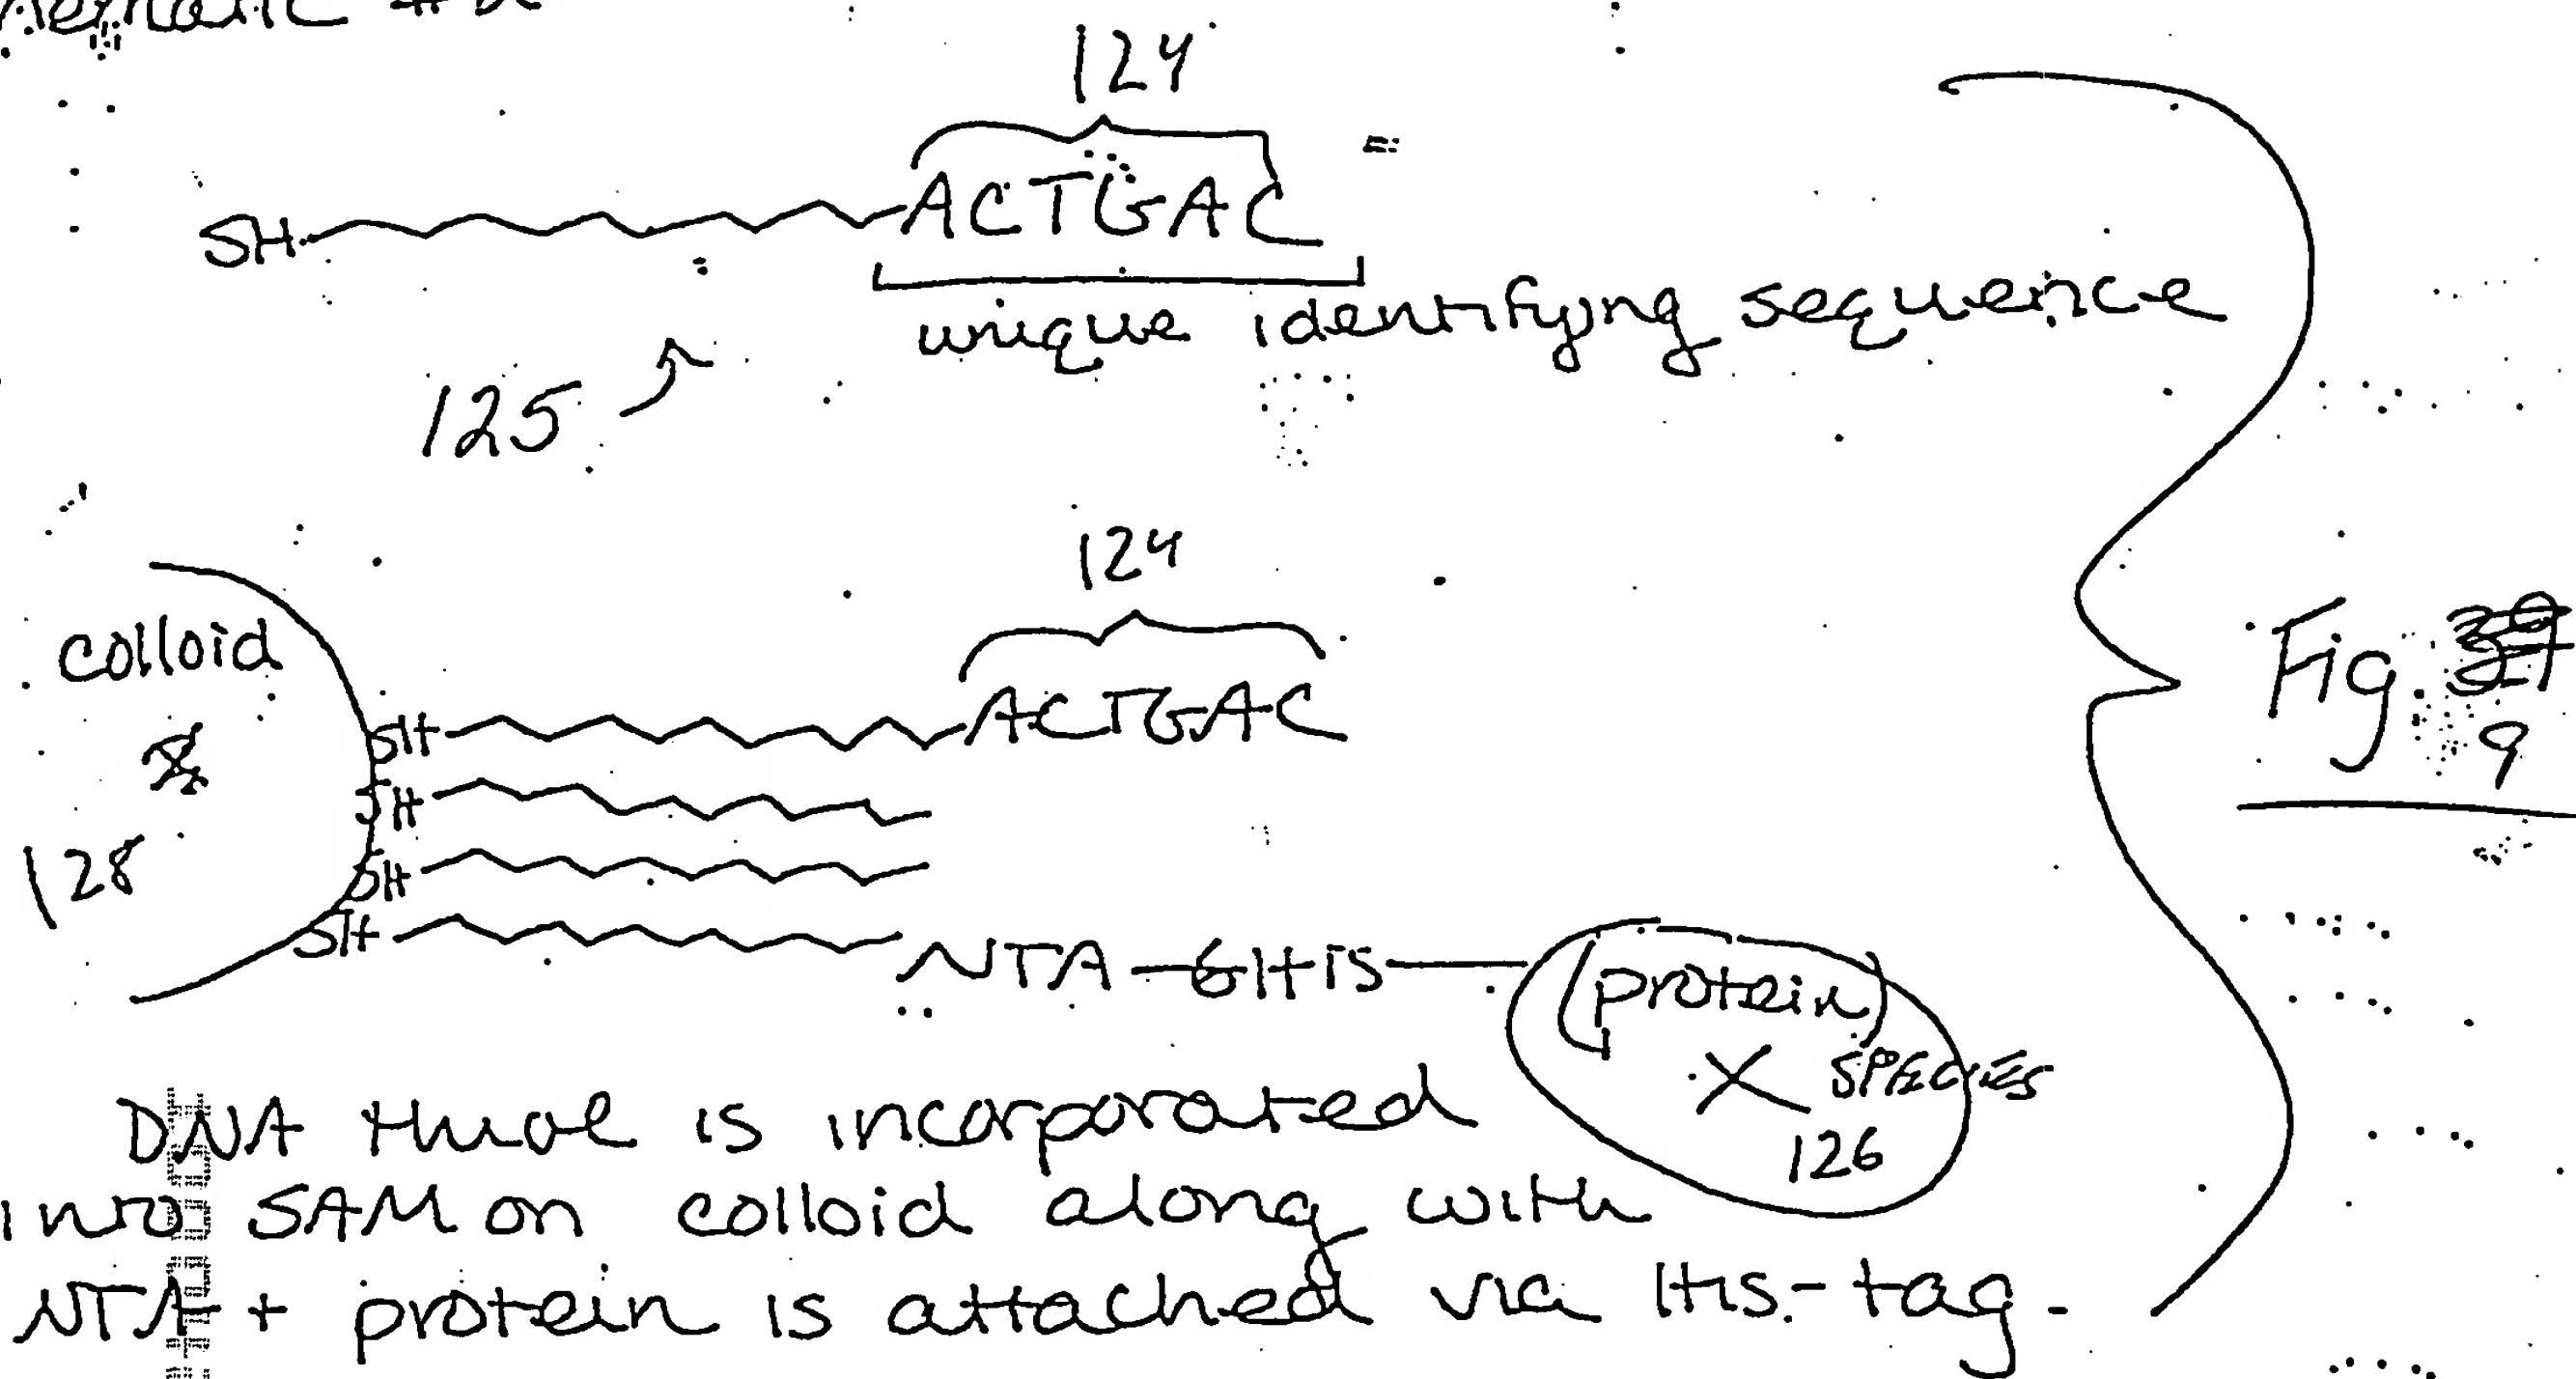 124
SH ACTGAC
unique identifying sequence
125
124
colloid
SH ACTGAC
SH
128
SH
SH NTA-6His (protein)
X SPECIES
126
Fig. 9
DNA thiol is incorporated
into SAM on colloid along with
NTA + protein is attached via His-tag.